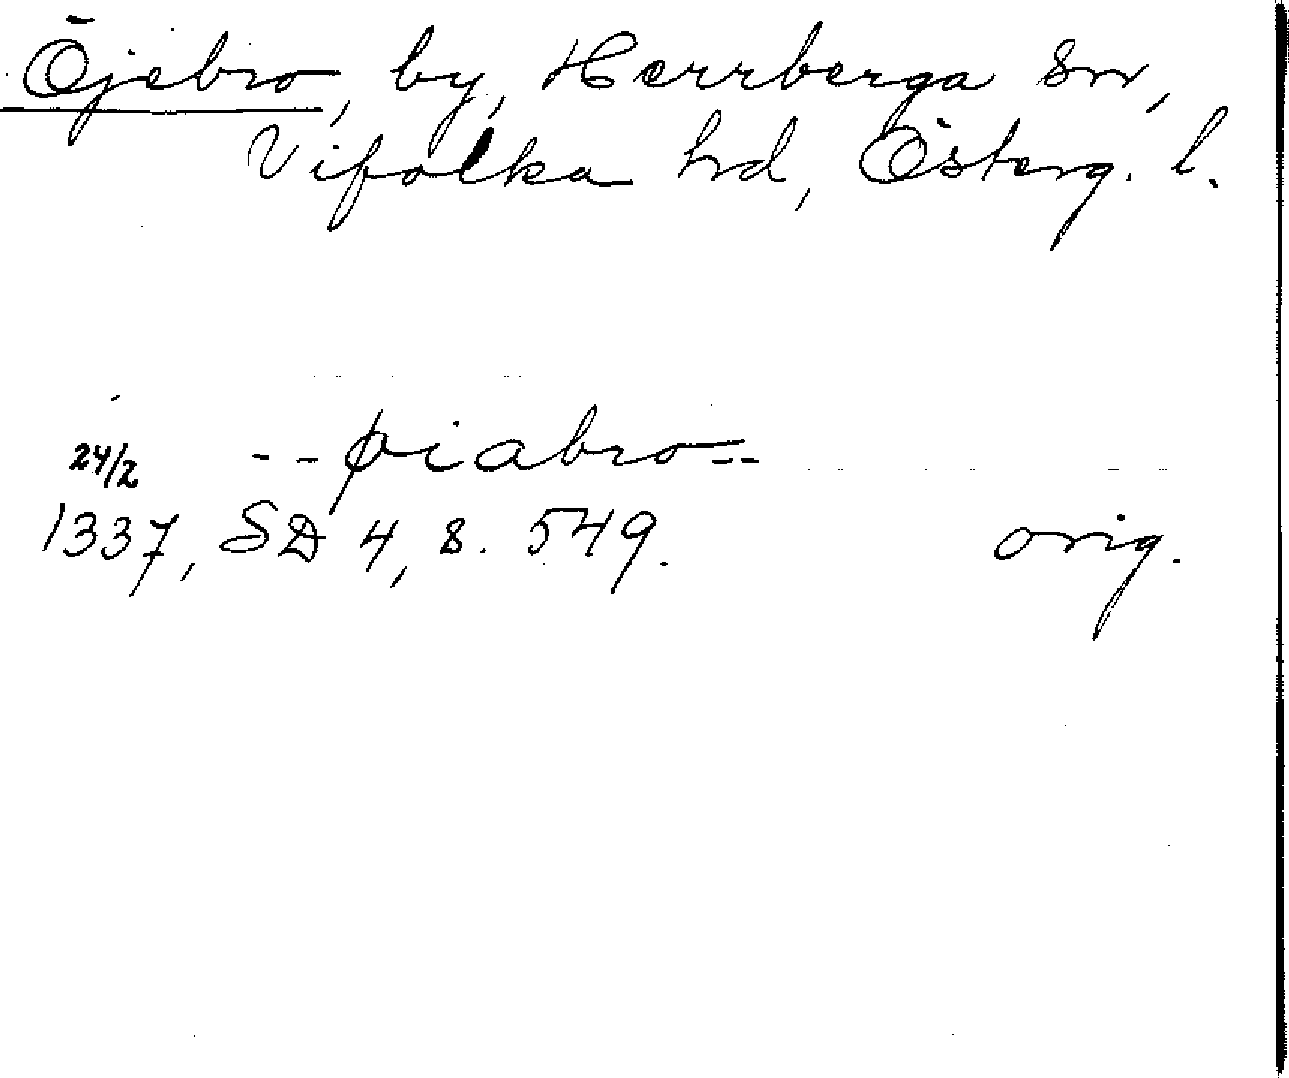 Öjebro, by, Herrberga sn,
Vifolka hd, Österg. l.
24/2 - - øiabro - -
1337, SD 4, s. 549. orig.